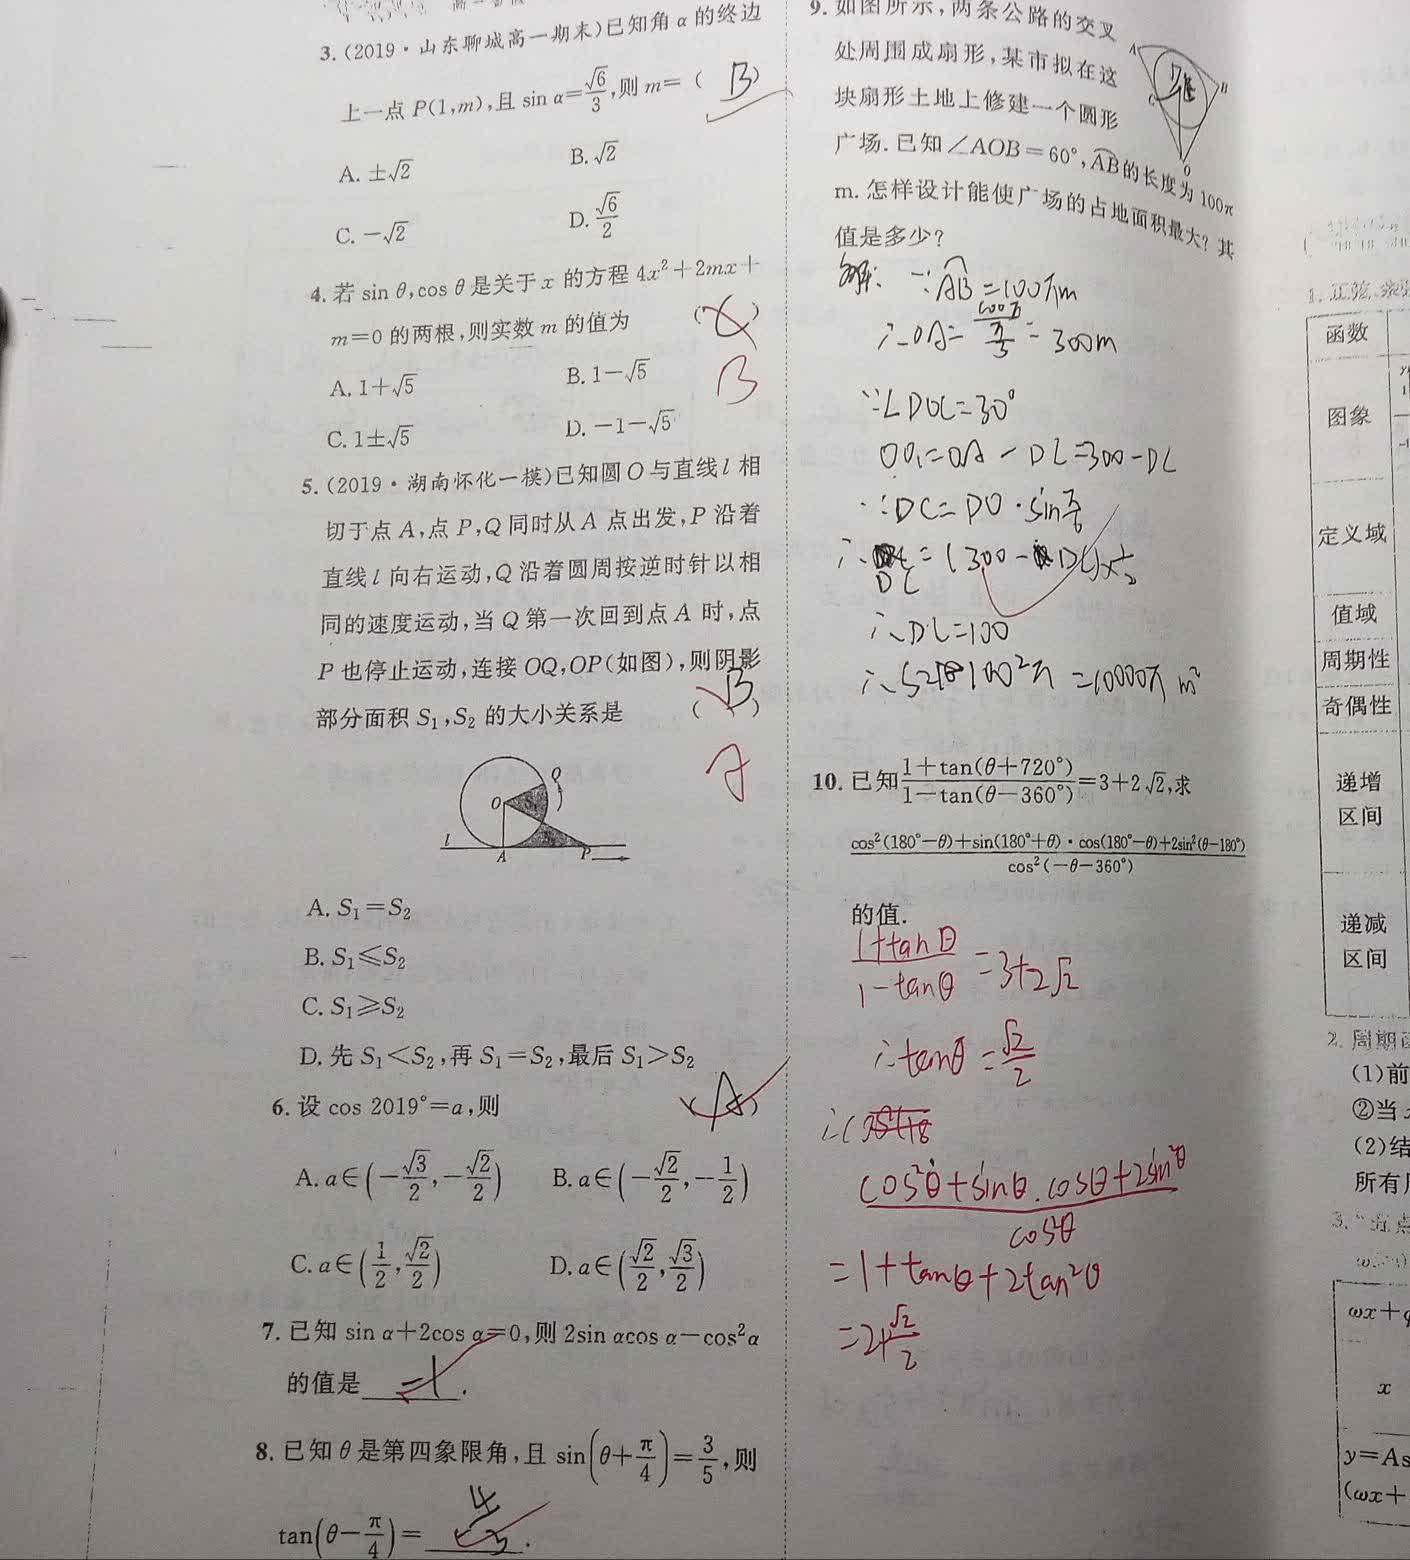 3.(2019·山东聊城高一期末)已知角α的终边
上一点P(1,m),且sin α=√6/3,则m=( B )
A.±√2 B.√2
C.-√2 D.√6/2
4.若sin θ,cos θ是关于x的方程4x²+2mx+
m=0的两根,则实数m的值为 ( )
B
A.1+√5 B.1-√5
C.1±√5 D.-1-√5
5.(2019·湖南怀化一模)已知圆O与直线l相
切于点A,点P,Q同时从A点出发,P沿着
直线l向右运动,Q沿着圆周按逆时针以相
同的速度运动,当Q第一次回到点A时,点
P也停止运动,连接OQ,OP(如图),则阴影
部分面积S₁,S₂的大小关系是 ( B )
A
O Q
l A P
A.S₁=S₂
B.S₁≤S₂
C.S₁≥S₂
D.先S₁<S₂,再S₁=S₂,最后S₁>S₂
6.设cos 2019°=a,则 ( A )
A.a∈(-√3/2,-√2/2) B.a∈(-√2/2,-1/2)
C.a∈(1/2,√2/2) D.a∈(√2/2,√3/2)
7.已知sin α+2cos α=0,则2sin αcos α-cos²α
的值是 -1 .
8.已知θ是第四象限角,且sin(θ+π/4)=3/5,则
tan(θ-π/4)= -4/3 .
9.如图所示,两条公路的交叉
处周围成扇形,某市拟在这
块扇形土地上修建一个圆形
广场.已知∠AOB=60°,AB的长度为100π
m.怎样设计能使广场的占地面积最大?其
值是多少?
A B
C
O
解:∵AB=100πm
∴OA=100π/(π/3)=300m
∵∠DOC=30°
OO₁=OA-DC=300-DC
∵DC=DO·sinπ/6
∴DC=(300-DC)×1/2
∴DC=100
∴S=100²π=10000π m²
10.已知(1+tan(θ+720°))/(1-tan(θ-360°))=3+2√2,求
(cos²(180°-θ)+sin(180°+θ)·cos(180°-θ)+2sin²(θ-180°))/(cos²(-θ-360°))
的值.
(1+tanθ)/(1-tanθ)=3+2√2
∴tanθ=√2/2
(cos²θ+sinθ·cosθ+2sin²θ)/cos²θ
=1+tanθ+2tan²θ
=2+√2/2
函数
图象
定义域
值域
周期性
奇偶性
递增
区间
递减
区间
2.周期
(1)前
②当
(2)结
所有
ωx+φ
x
y=As
(ωx+